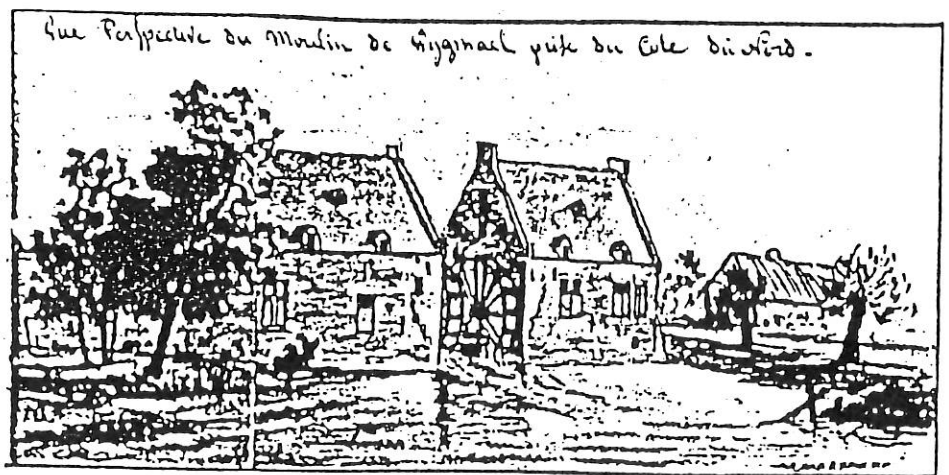 Vue Perspective du Moulin de Wijgmael prise du Coté du Nord.